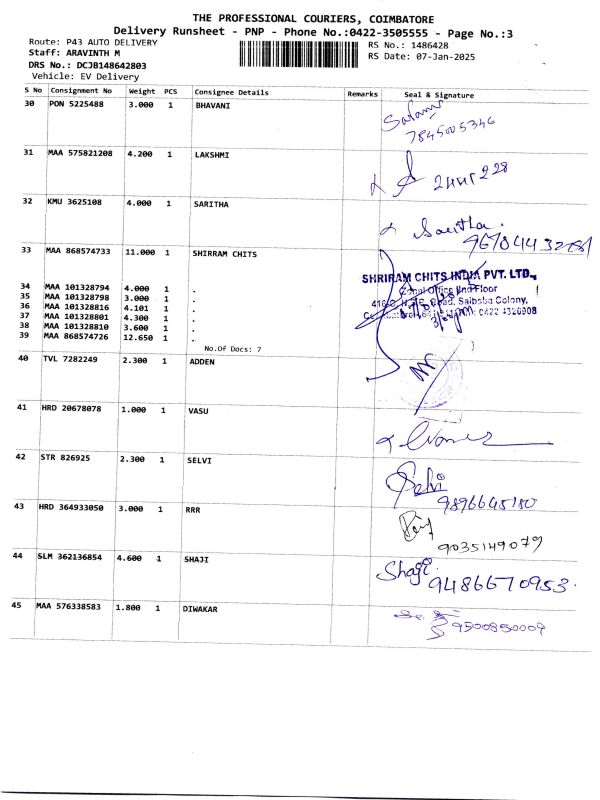 THE PROFESSIONAL COURIERS, COIMBATORE
Delivery Runsheet - PNP - Phone No.:0422-3505555 - Page No.:3
Route: P43 AUTO DELIVERY
RS No.: 1486428
Staff: ARAVINTH M
RS Date: 07-Jan-2025
DRS No.: DCJB148642803
Vehicle: EV Delivery
S No Consignment No Weight PCS Consignee Details Remarks Seal & Signature
30 PON 5225488 3.000 1 BHAVANI
7845005346
31 MAA 575821208 4.200 1 LAKSHMI
32 KMU 3625108 4.000 1 SARITHA
Saritha
33 MAA 868574733 11.000 1 SHIRRAM CHITS
SHRIRAM CHITS INDIA PVT. LTD.,
34 MAA 101328794 4.000 1 .
35 MAA 101328798 3.000 1 .
36 MAA 101328816 4.101 1 .
37 MAA 101328801 4.300 1 .
38 MAA 101328810 3.600 1 .
39 MAA 868574726 12.650 1 .
No.Of Docs: 7
Zonal Office IInd Floor
Saibaba Colony,
40 TVL 7282249 2.300 1 ADDEN
41 HRD 20678078 1.000 1 VASU
42 STR 826925 2.300 1 SELVI
Selvi
9896645180
43 HRD 364933050 3.000 1 RRR
9035149079
44 SLM 362136854 4.600 1 SHAJI
Shaji
9486670953.
45 MAA 576338583 1.800 1 DIWAKAR
9500850009